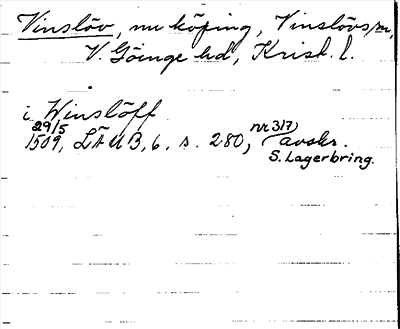 Vinslöv, nu köping, Vinslövs sn,
V. Göinge hd, Krist. l.
i Winslöff
29/5
1509, LÄUB, 6, s. 280, nr 317, avskr.
S. Lagerbring.